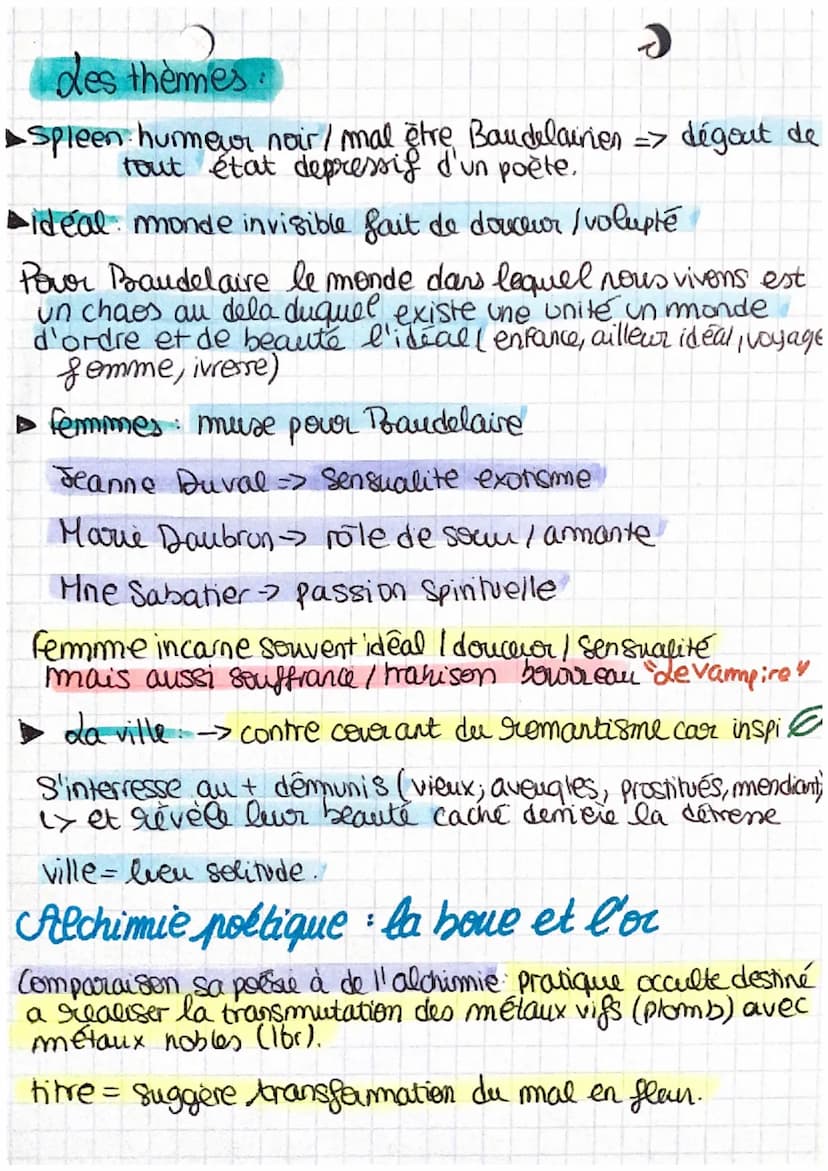 des thèmes :
▶Spleen: humeur noir / mal être Baudelairien => dégout de
tout état depressif d'un poète.
▶idéal: monde invisible fait de douceur / volupté
Pour Baudelaire le monde dans lequel nous vivons est
un chaos au dela duquel existe une unité un monde
d'ordre et de beauté l'idéal ( enfance, ailleur idéal, voyage
femme, ivresse)
▶ femmes : muse pour Baudelaire
Jeanne Duval => Sensualité exotisme
Marie Daubrun -> rôle de sœur / amante
Mne Sabatier -> passion Spirituelle
femme incarne souvent idéal / douceur / sensualité
mais aussi souffrance / trahison bourreau "de vampire"
▶ La ville : -> contre courant du romantisme car inspi
S'interresse au + démunis (vieux, aveugles, prostitués, mendiant)
↳ et révèle leur beauté caché derrière la détresse
ville = lieu solitude.
Alchimie poétique : la boue et l'or
Comparaison sa poésie à de l'alchimie: pratique occulte destiné
a realiser la transmutation des métaux vifs (plomb) avec
métaux nobles (l'or).
titre = suggère transformation du mal en fleur.